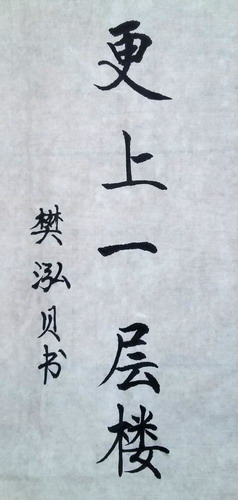 更上一层楼
樊泓贝书